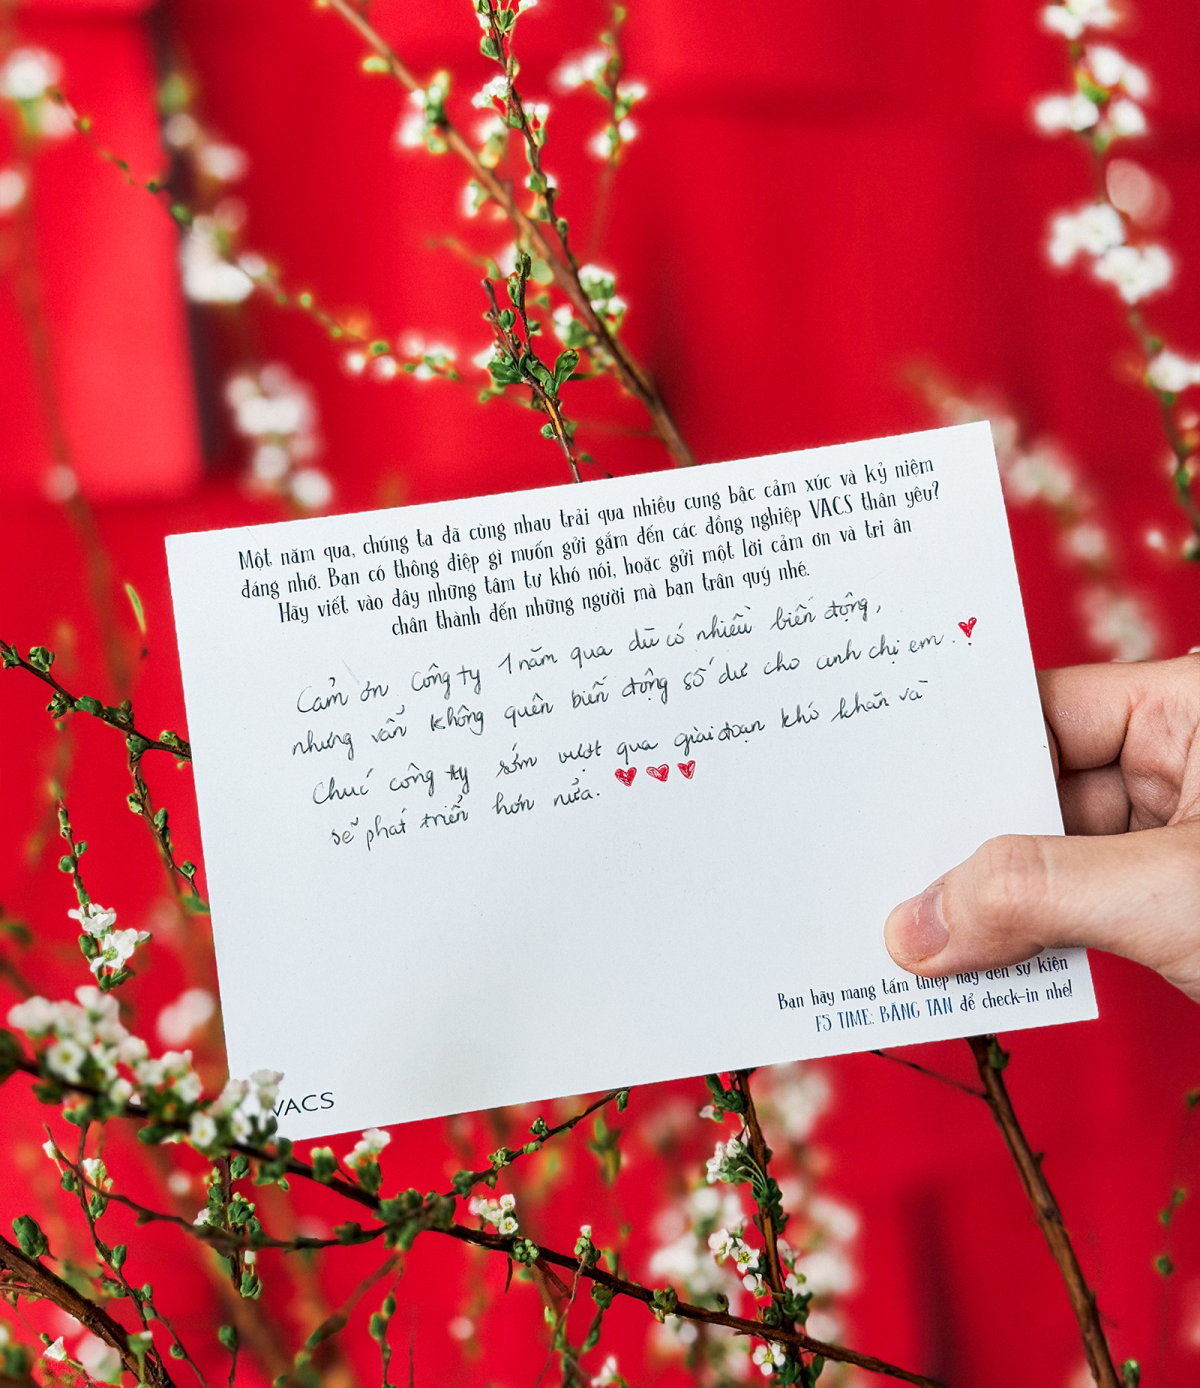 Một năm qua, chúng ta đã cùng nhau trải qua nhiều cung bậc cảm xúc và kỷ niệm
đáng nhớ. Bạn có thông điệp gì muốn gửi gắm đến các đồng nghiệp VACS thân yêu?
Hãy viết vào đây những tâm tư khó nói, hoặc gửi một lời cảm ơn và tri ân
chân thành đến những người mà bạn trân quý nhé.
Cảm ơn công ty 1 năm qua dù có nhiều biến động,
nhưng vẫn không quên biến động số dư cho anh chị em.
Chúc công ty sớm vượt qua giai đoạn khó khăn và
sẽ phát triển hơn nữa.
Bạn hãy mang tấm thiệp này đến sự kiện
F5 TIME: BĂNG TAN để check-in nhé!
VACS